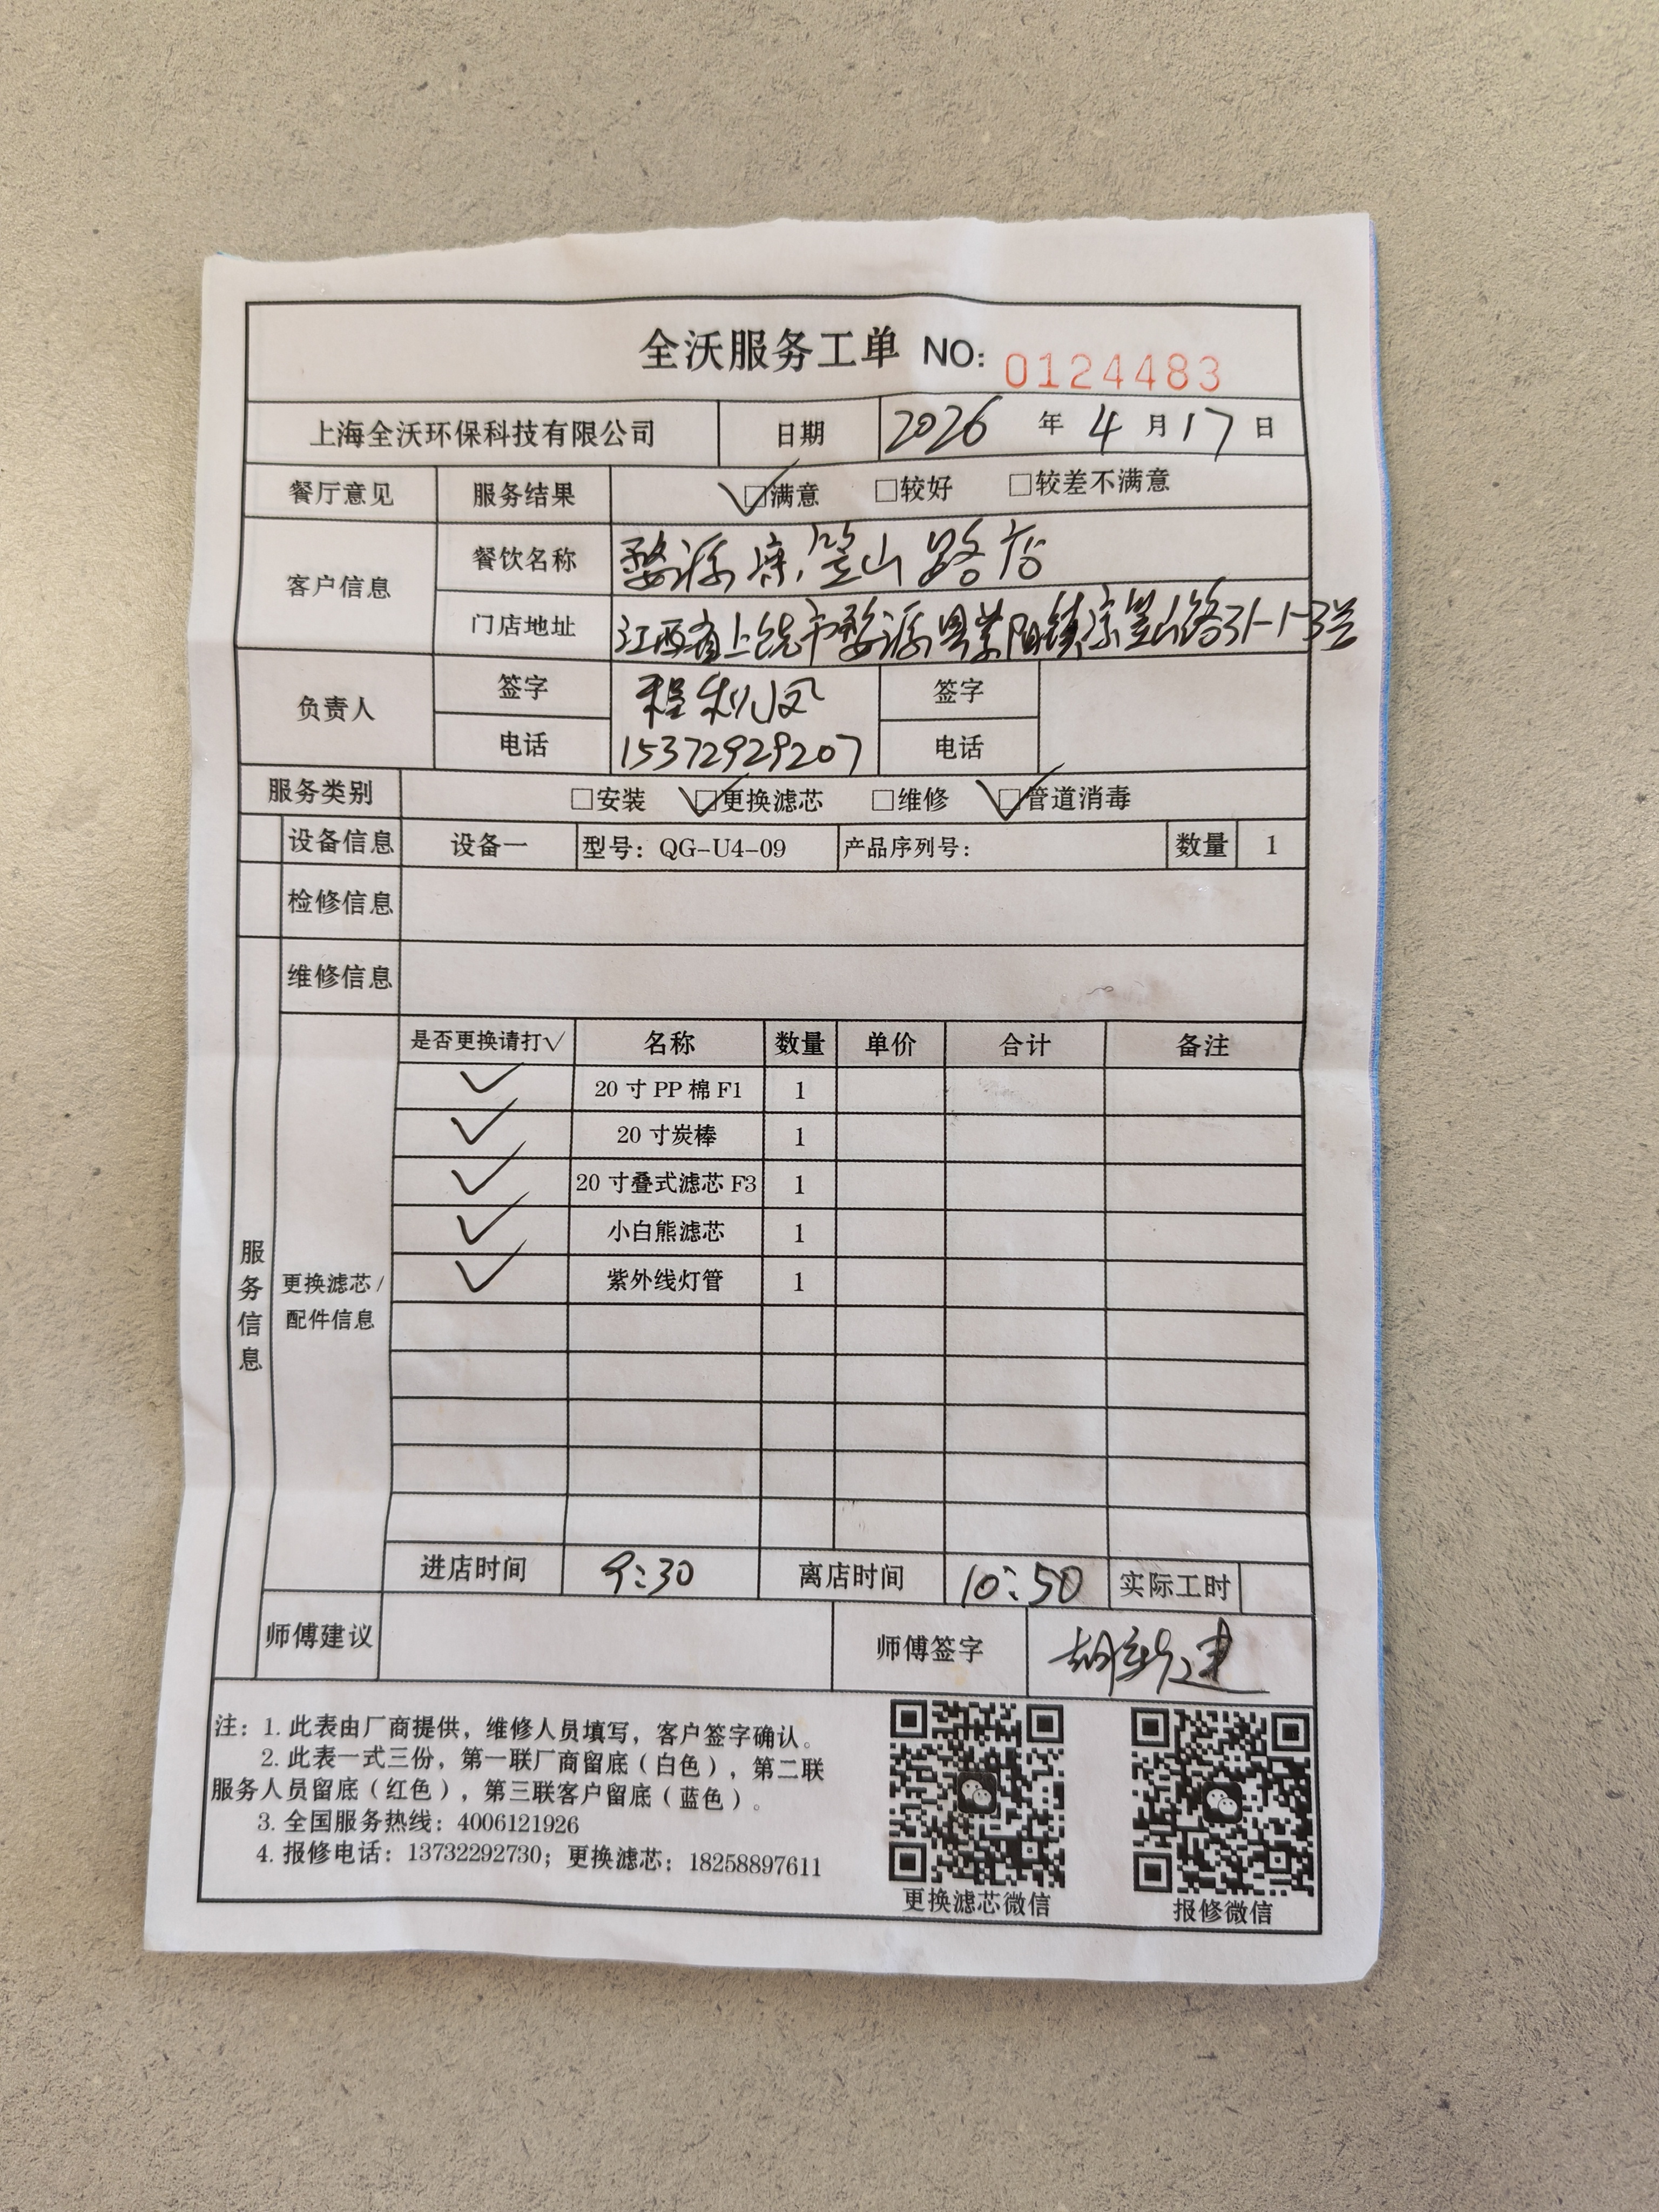 全沃服务工单 NO: 0124483
上海全沃环保科技有限公司 日期 2026 年 4 月 17 日
餐厅意见 服务结果 ☑满意 □较好 □较差不满意
客户信息 餐饮名称 婺源 笠山路店
门店地址 江西省上饶市婺源县紫阳镇 笠山路31-1-3号
负责人 签字 程利凤 签字
电话 15372929207 电话
服务类别 □安装 ☑更换滤芯 □维修 ☑管道消毒
设备信息 设备一 型号: QG-U4-09 产品序列号: 数量 1
检修信息
维修信息
服务信息
更换滤芯/配件信息
是否更换请打√ 名称 数量 单价 合计 备注
✓ 20 寸 PP 棉 F1 1
✓ 20 寸炭棒 1
✓ 20 寸叠式滤芯 F3 1
✓ 小白熊滤芯 1
✓ 紫外线灯管 1
进店时间 9:30 离店时间 10:50 实际工时
师傅建议 师傅签字
注: 1. 此表由厂商提供, 维修人员填写, 客户签字确认。
2. 此表一式三份, 第一联厂商留底(白色), 第二联
服务人员留底(红色), 第三联客户留底(蓝色)。
3. 全国服务热线: 4006121926
4. 报修电话: 13732292730; 更换滤芯: 18258897611
更换滤芯微信 报修微信